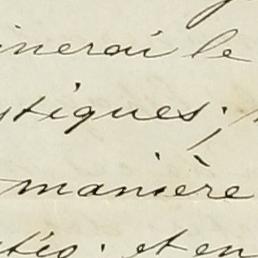 inerai le
tiques;
manière
et en